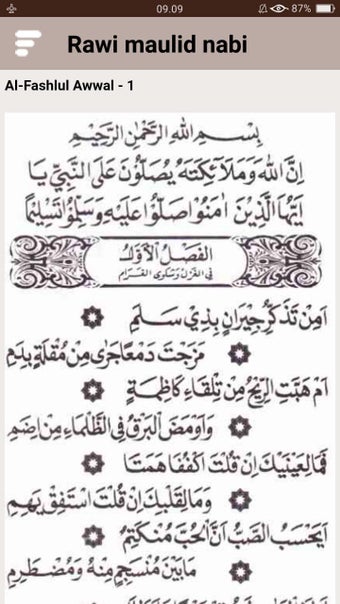 09.09
87%
Rawi maulid nabi
Al-Fashlul Awwal - 1
بِسْمِ اللهِ الرَّحْمٰنِ الرَّحِيْمِ
اِنَّ اللهَ وَمَلَآئِكَتَهُ يُصَلُّوْنَ عَلَى النَّبِيِّ يَا
اَيُّهَا الَّذِيْنَ اٰمَنُوْا صَلُّوْا عَلَيْهِ وَسَلِّمُوْا تَسْلِيْمًا
اَلْفَصْلُ الْاَوَّلُ
فِي الْغَزْلِ وَشَكْوَى الْغَرَامِ
اَمِنْ تَذَكُّرِ جِيْرَانٍ بِذِيْ سَلَمِ
مَزَجْتَ دَمْعًا جَرٰى مِنْ مُقْلَةٍ بِدَمِ
اَمْ هَبَّتِ الرِّيْحُ مِنْ تِلْقَاءِ كَاظِمَةٍ
وَاَوْمَضَ الْبَرْقُ فِي الظَّلْمَاءِ مِنْ اِضَمِ
فَمَا لِعَيْنَيْكَ اِنْ قُلْتَ اكْفُفَا هَمَتَا
وَمَا لِقَلْبِكَ اِنْ قُلْتَ اسْتَفِقْ يَهِمِ
اَيَحْسَبُ الصَّبُّ اَنَّ الْحُبَّ مُنْكَتِمٌ
مَا بَيْنَ مُنْسَجِمٍ مِنْهُ وَمُضْطَرِمِ